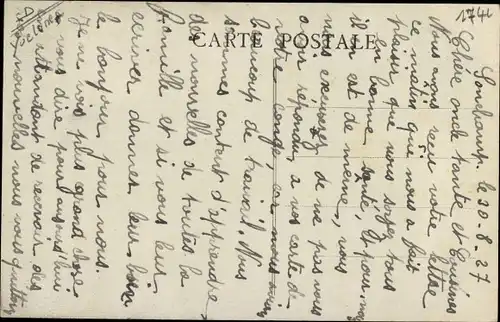 1744
CARTE POSTALE
Lonchamp. le 30-8-27
Chère oncle tante et Cousines
Nous avons reçu votre lettre
ce matin qui nous a fait
plaisir que vous soyez tous
en bonne santé, et pour nous
il en est de même, vous
nous excuserez de ne pas vous
avoir répondu, a vos carte d
votre congé car nous avons
beaucoup de travail. Nous
sommes content d'apprendre
des nouvelles de toutes la
famille et si vous leur
écriver donner leur bien
le bonjour pour nous.
Je ne vois plus grand chose
a vous dire pour aujourd'hui
En attendant de recevoir des
nouvelles nous vous quittons